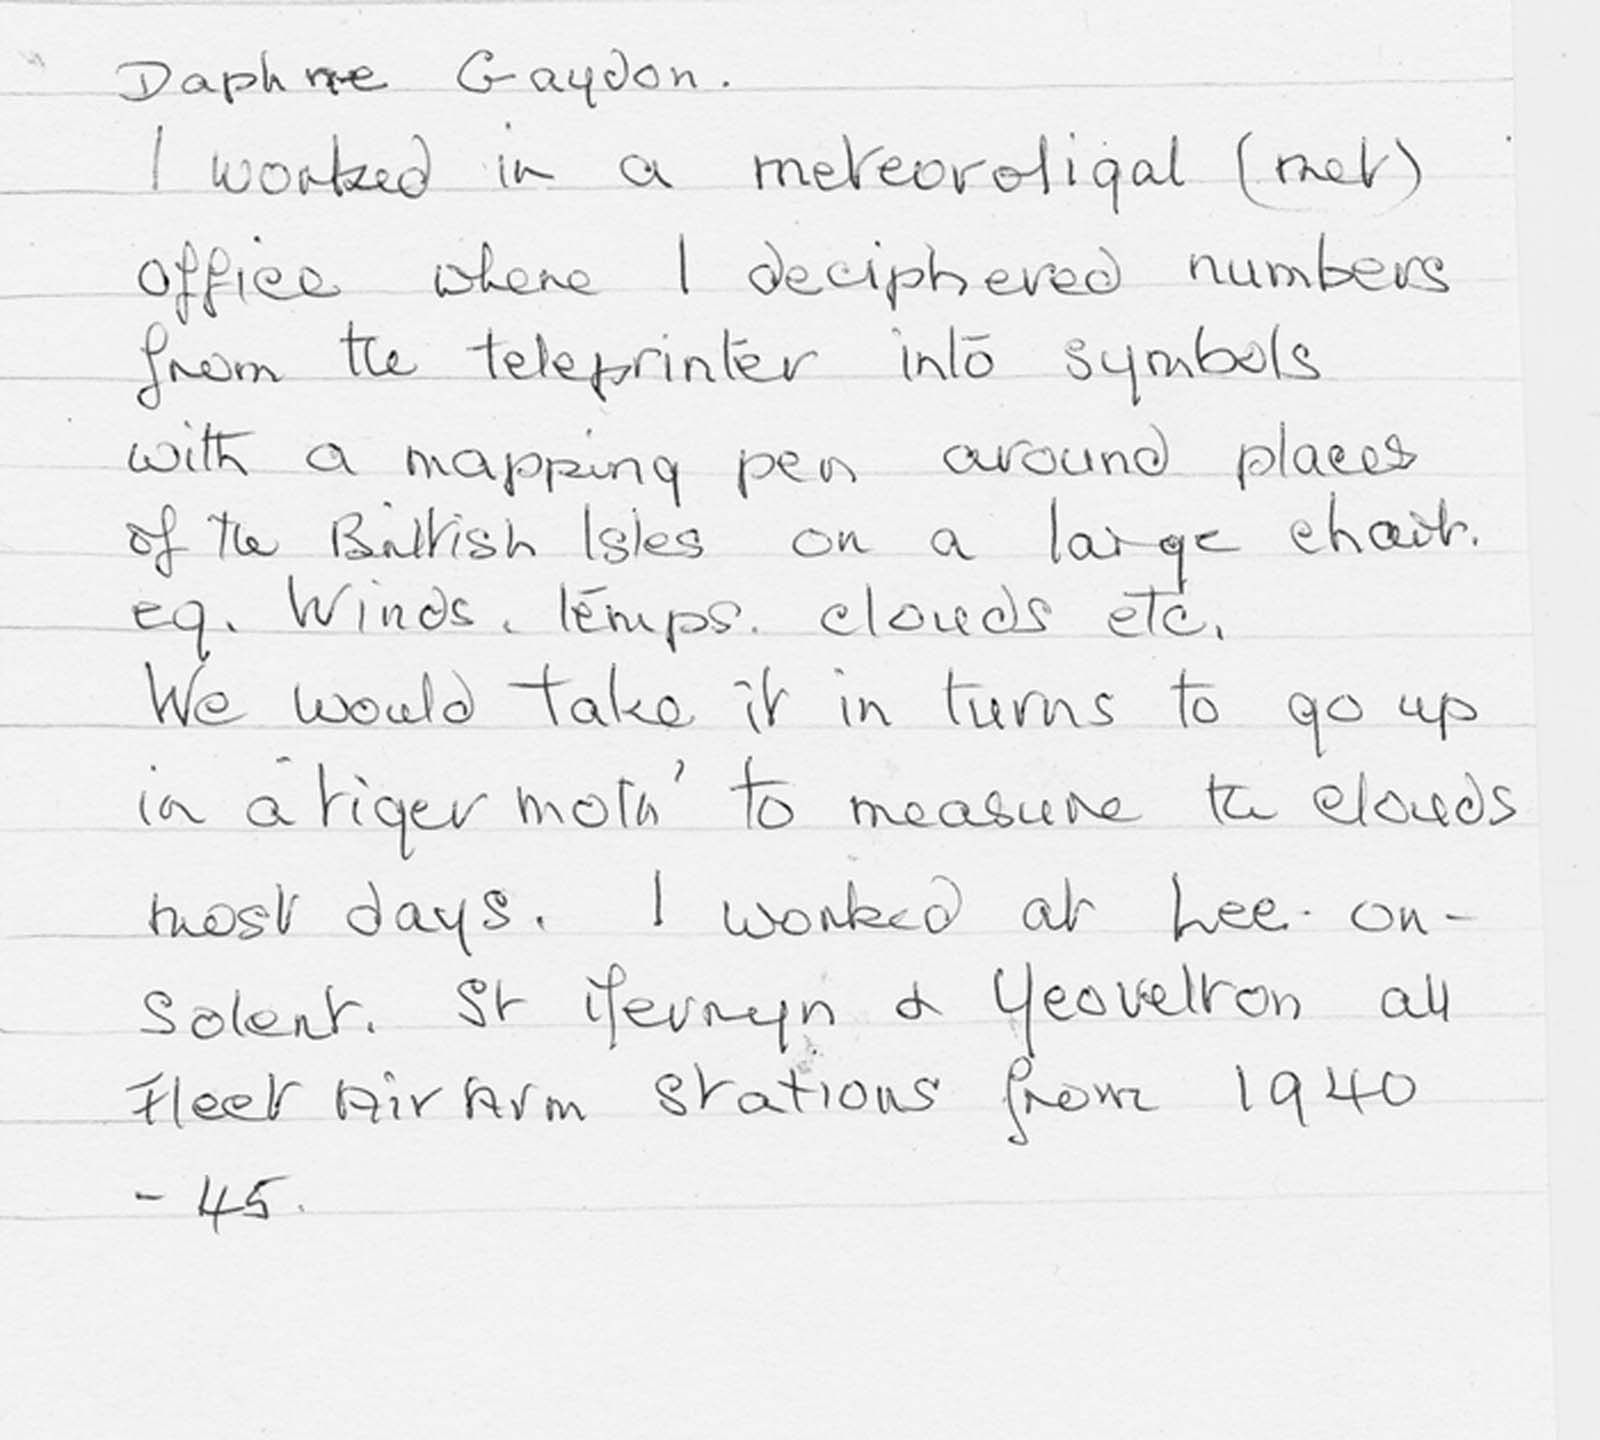 Daphne Gaydon.
I worked in a meteoroligal (met)
office where I deciphered numbers
from the teleprinter into symbols
with a mapping pen around places
of the British Isles on a large chart.
eg. Winds. temps. clouds etc.
We would take it in turns to go up
in a 'tiger moth' to measure the clouds
most days. I worked at Lee-on-
Solent. St Mervyn & Yeovelton all
Fleet Air Arm stations from 1940
- 45.